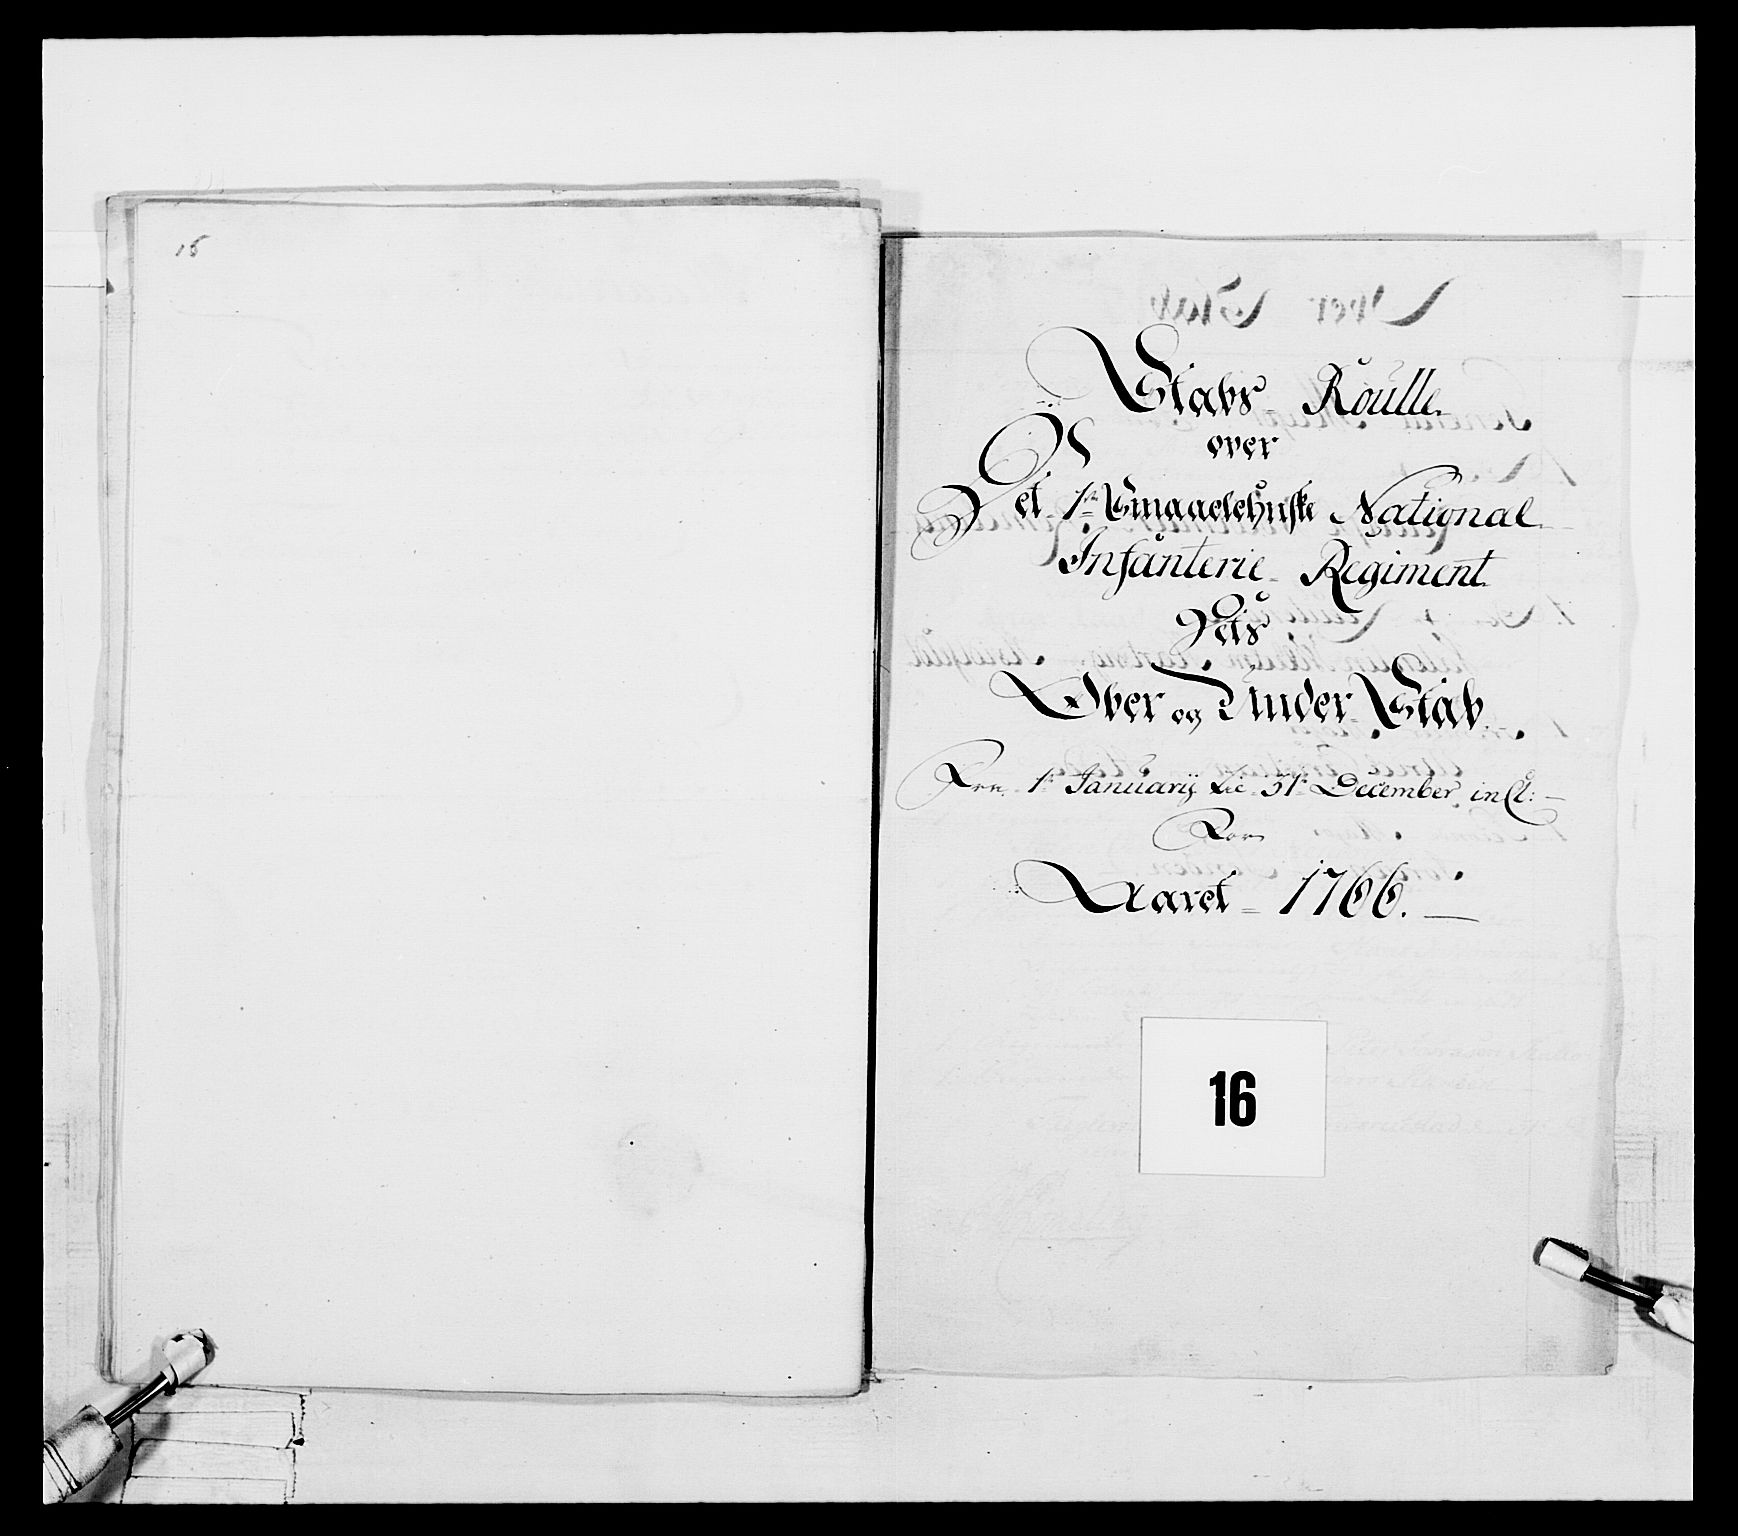 16
Stabs-Roulle
over
Det 1te Smaalehnske National
Infanterie-Regiment
Dets
Over og Under-Stab
Fra 1te Januarij til 31te December incl:
For
Aaret=1766.
16